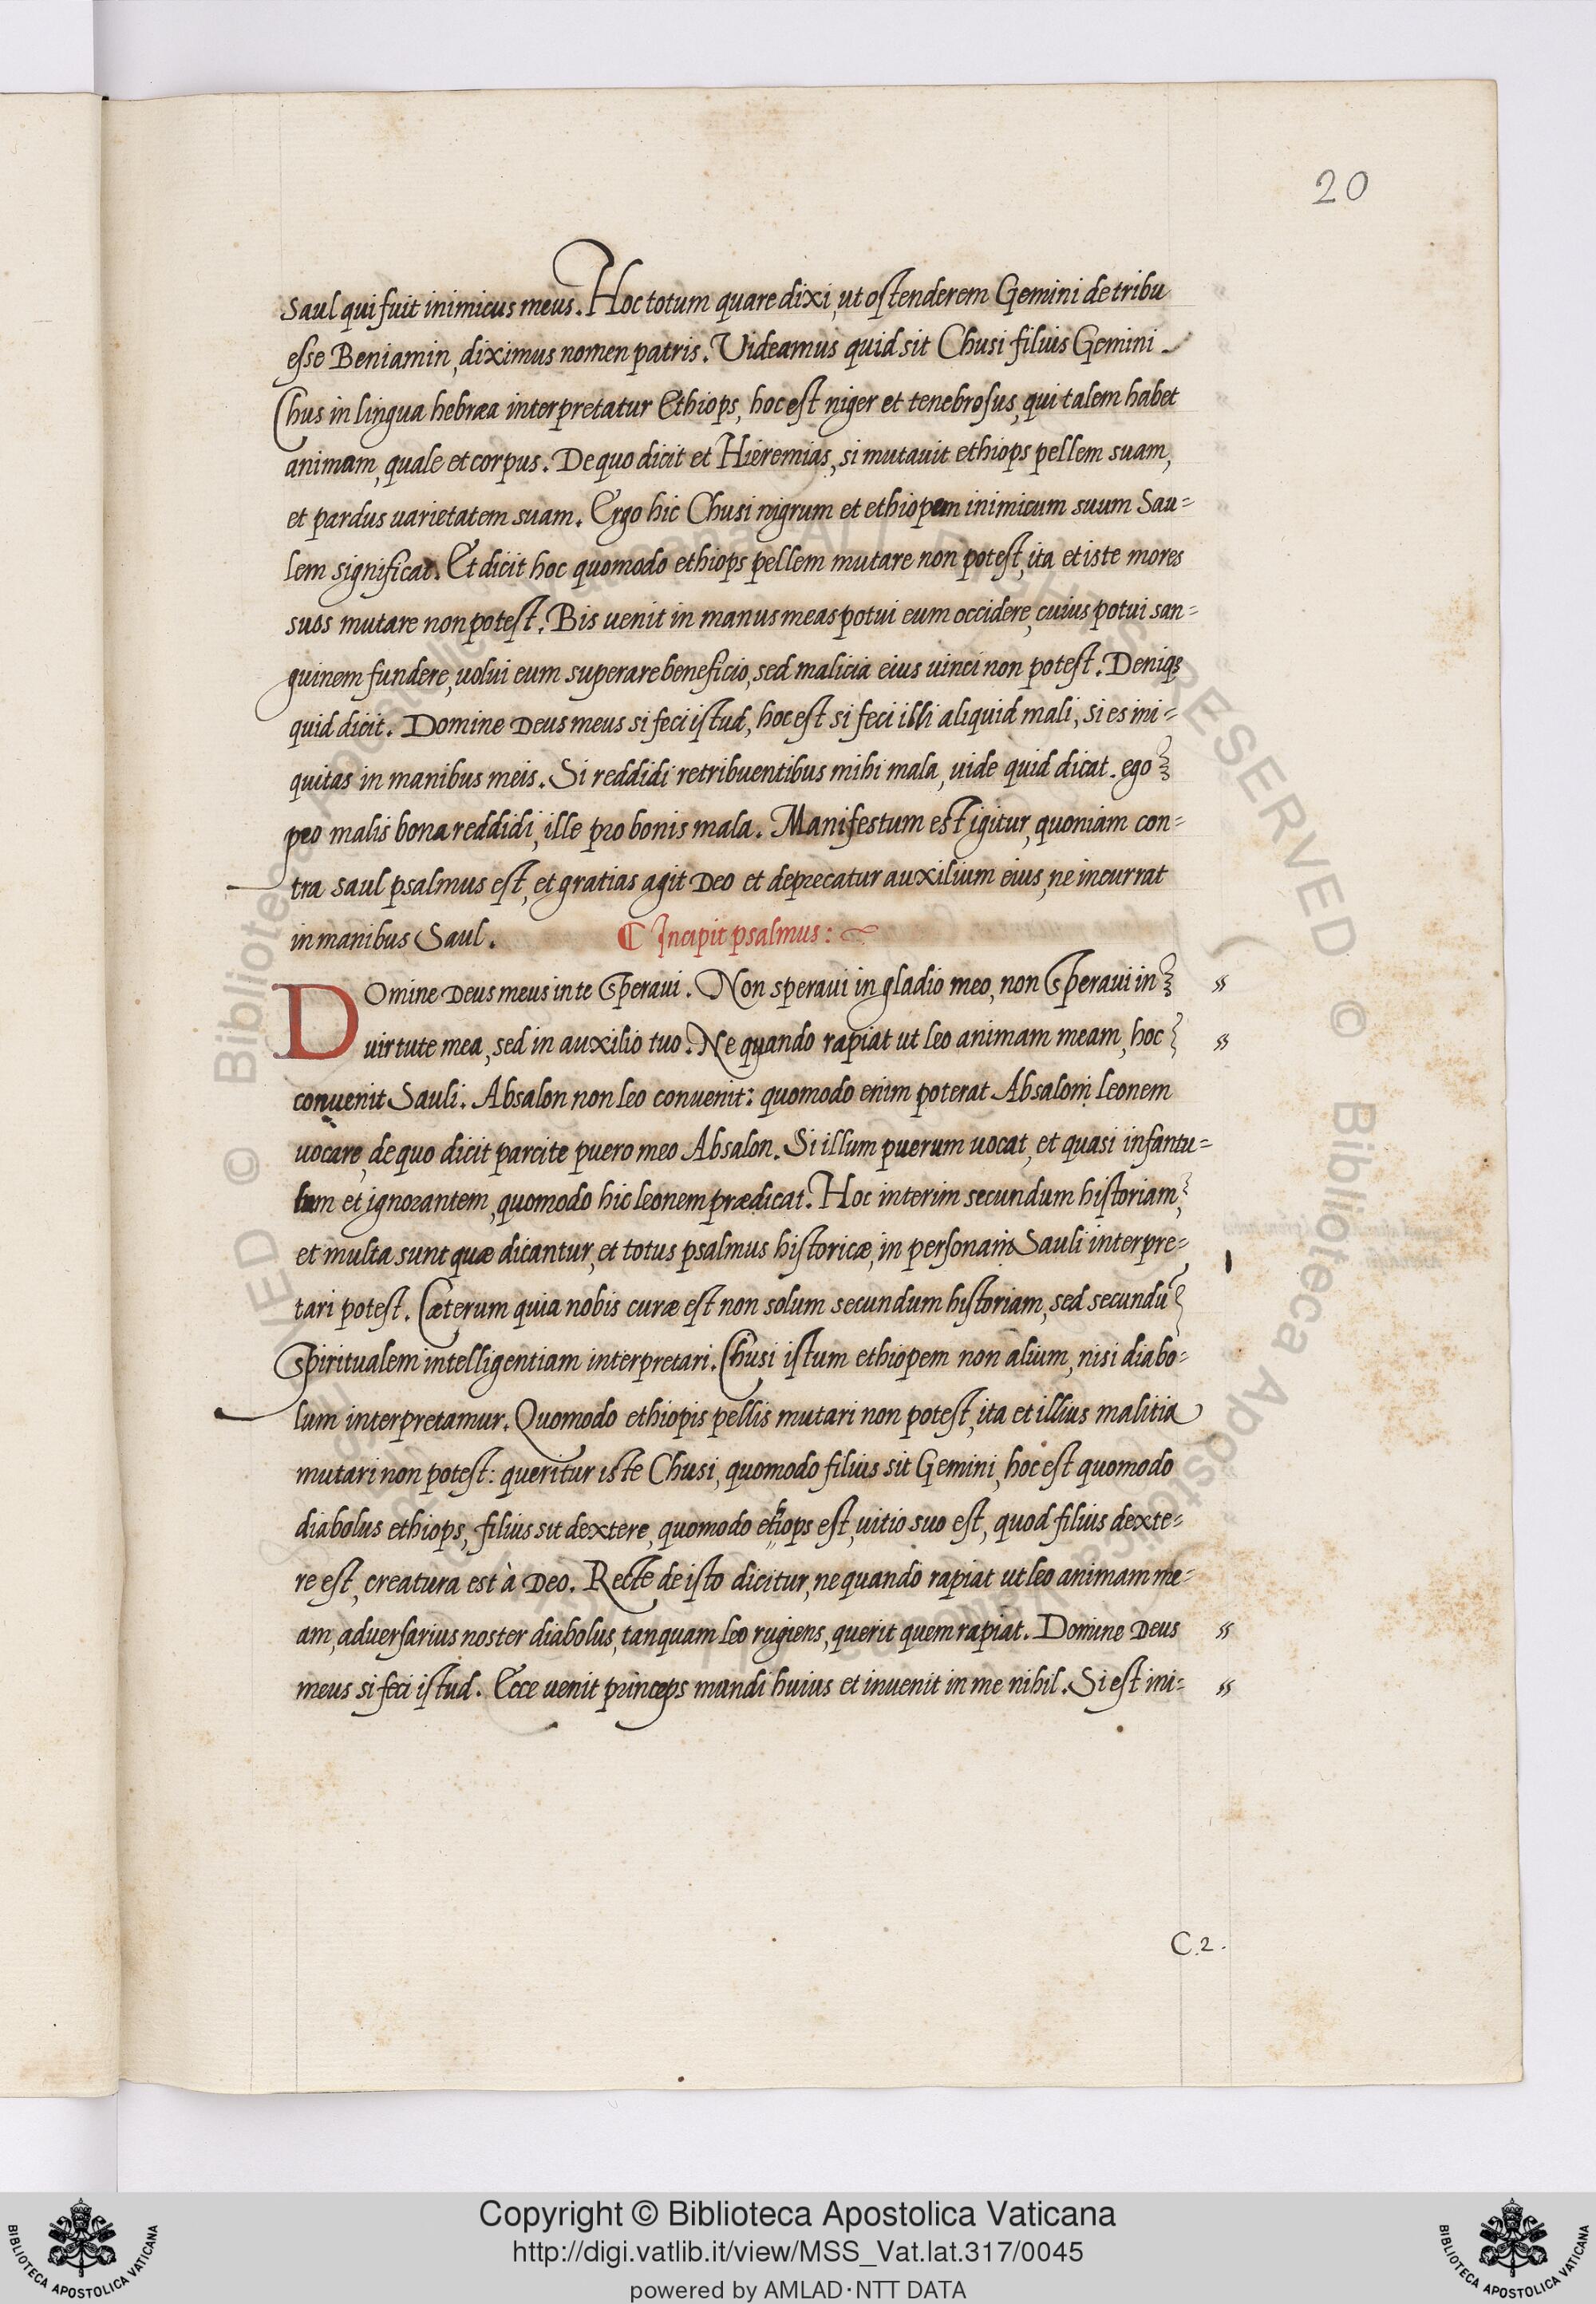 20
Saul qui fuit inimicus meus. Hoc totum quare dixi, ut ostenderem Gemini de tribu
esse Beniamin, diximus nomen patris. Videamus quid sit Chusi filius Gemini
Chus in lingua hebræa interpretatur Ethiops, hoc est niger et tenebrosus, qui talem habet
animam, quale et corpus. De quo dicit et Hieremias, si mutauit ethiops pellem suam,
et pardus uarietatem suam. Ergo hic Chusi nigrum et ethiopem inimicum suum Sau=
lem significat. Et dicit hoc quomodo ethiops pellem mutare non potest, ita et iste mores
suos mutare non potest. Bis uenit in manus meas potui eum occidere, cuius potui san=
guinem fundere, uolui eum superare beneficio, sed malicia eius uinci non potest. Deniqȝ
quid dicit. Domine Deus meus si feci istud, hoc est si feci illi aliquid mali, si es ini=
quitas in manibus meis. Si reddidi retribuentibus mihi mala, uide quid dicat. ego
pro malis bona reddidi, ille pro bonis mala. Manifestum est igitur, quoniam con=
tra saul psalmus est, et gratias agit Deo et deprecatur auxilium eius, ne incurrat
in manibus Saul. ¶ Incipit psalmus:
DOmine Deus meus in te speraui. Non speraui in gladio meo, non speraui in
uirtute mea, sed in auxilio tuo. Ne quando rapiat ut leo animam meam, hoc
conuenit Sauli. Absalon non leo conuenit: quomodo enim poterat Absalom leonem
uocare, de quo dicit parcite puero meo Absalon. Si illum puerum uocat, et quasi infantu=
lum et ignorantem, quomodo hic leonem prædicat. Hoc interim secundum historiam,
et multa sunt quæ dicantur, et totus psalmus historicæ, in personam Sauli interpre=
tari potest. Cæterum quia nobis curæ est non solum secundum historiam, sed secundũ
spiritualem intelligentiam interpretari. Chusi istum ethiopem non alium, nisi diabo=
lum interpretamur. Quomodo ethiopis pellis mutari non potest, ita et illius malitia
mutari non potest: queritur iste Chusi, quomodo filius sit Gemini, hoc est quomodo
diabolus ethiops, filius sit dextere, quomodo ethiops est, uitio suo est, quod filius dexte=
re est, creatura est à Deo. Recte de isto dicitur, ne quando rapiat ut leo animam me=
am, aduersarius noster diabolus, tanquam leo rugiens, querit quem rapiat. Domine Deus
meus si feci istud. Ecce uenit princeps mundi huius et inuenit in me nihil. Si est ini=
C.2.
© Biblioteca Apostolica Vaticana
Copyright © Biblioteca Apostolica Vaticana
http://digi.vatlib.it/view/MSS_Vat.lat.317/0045
powered by AMLAD·NTT DATA
BIBLIOTECA APOSTOLICA VATICANA
BIBLIOTECA APOSTOLICA VATICANA